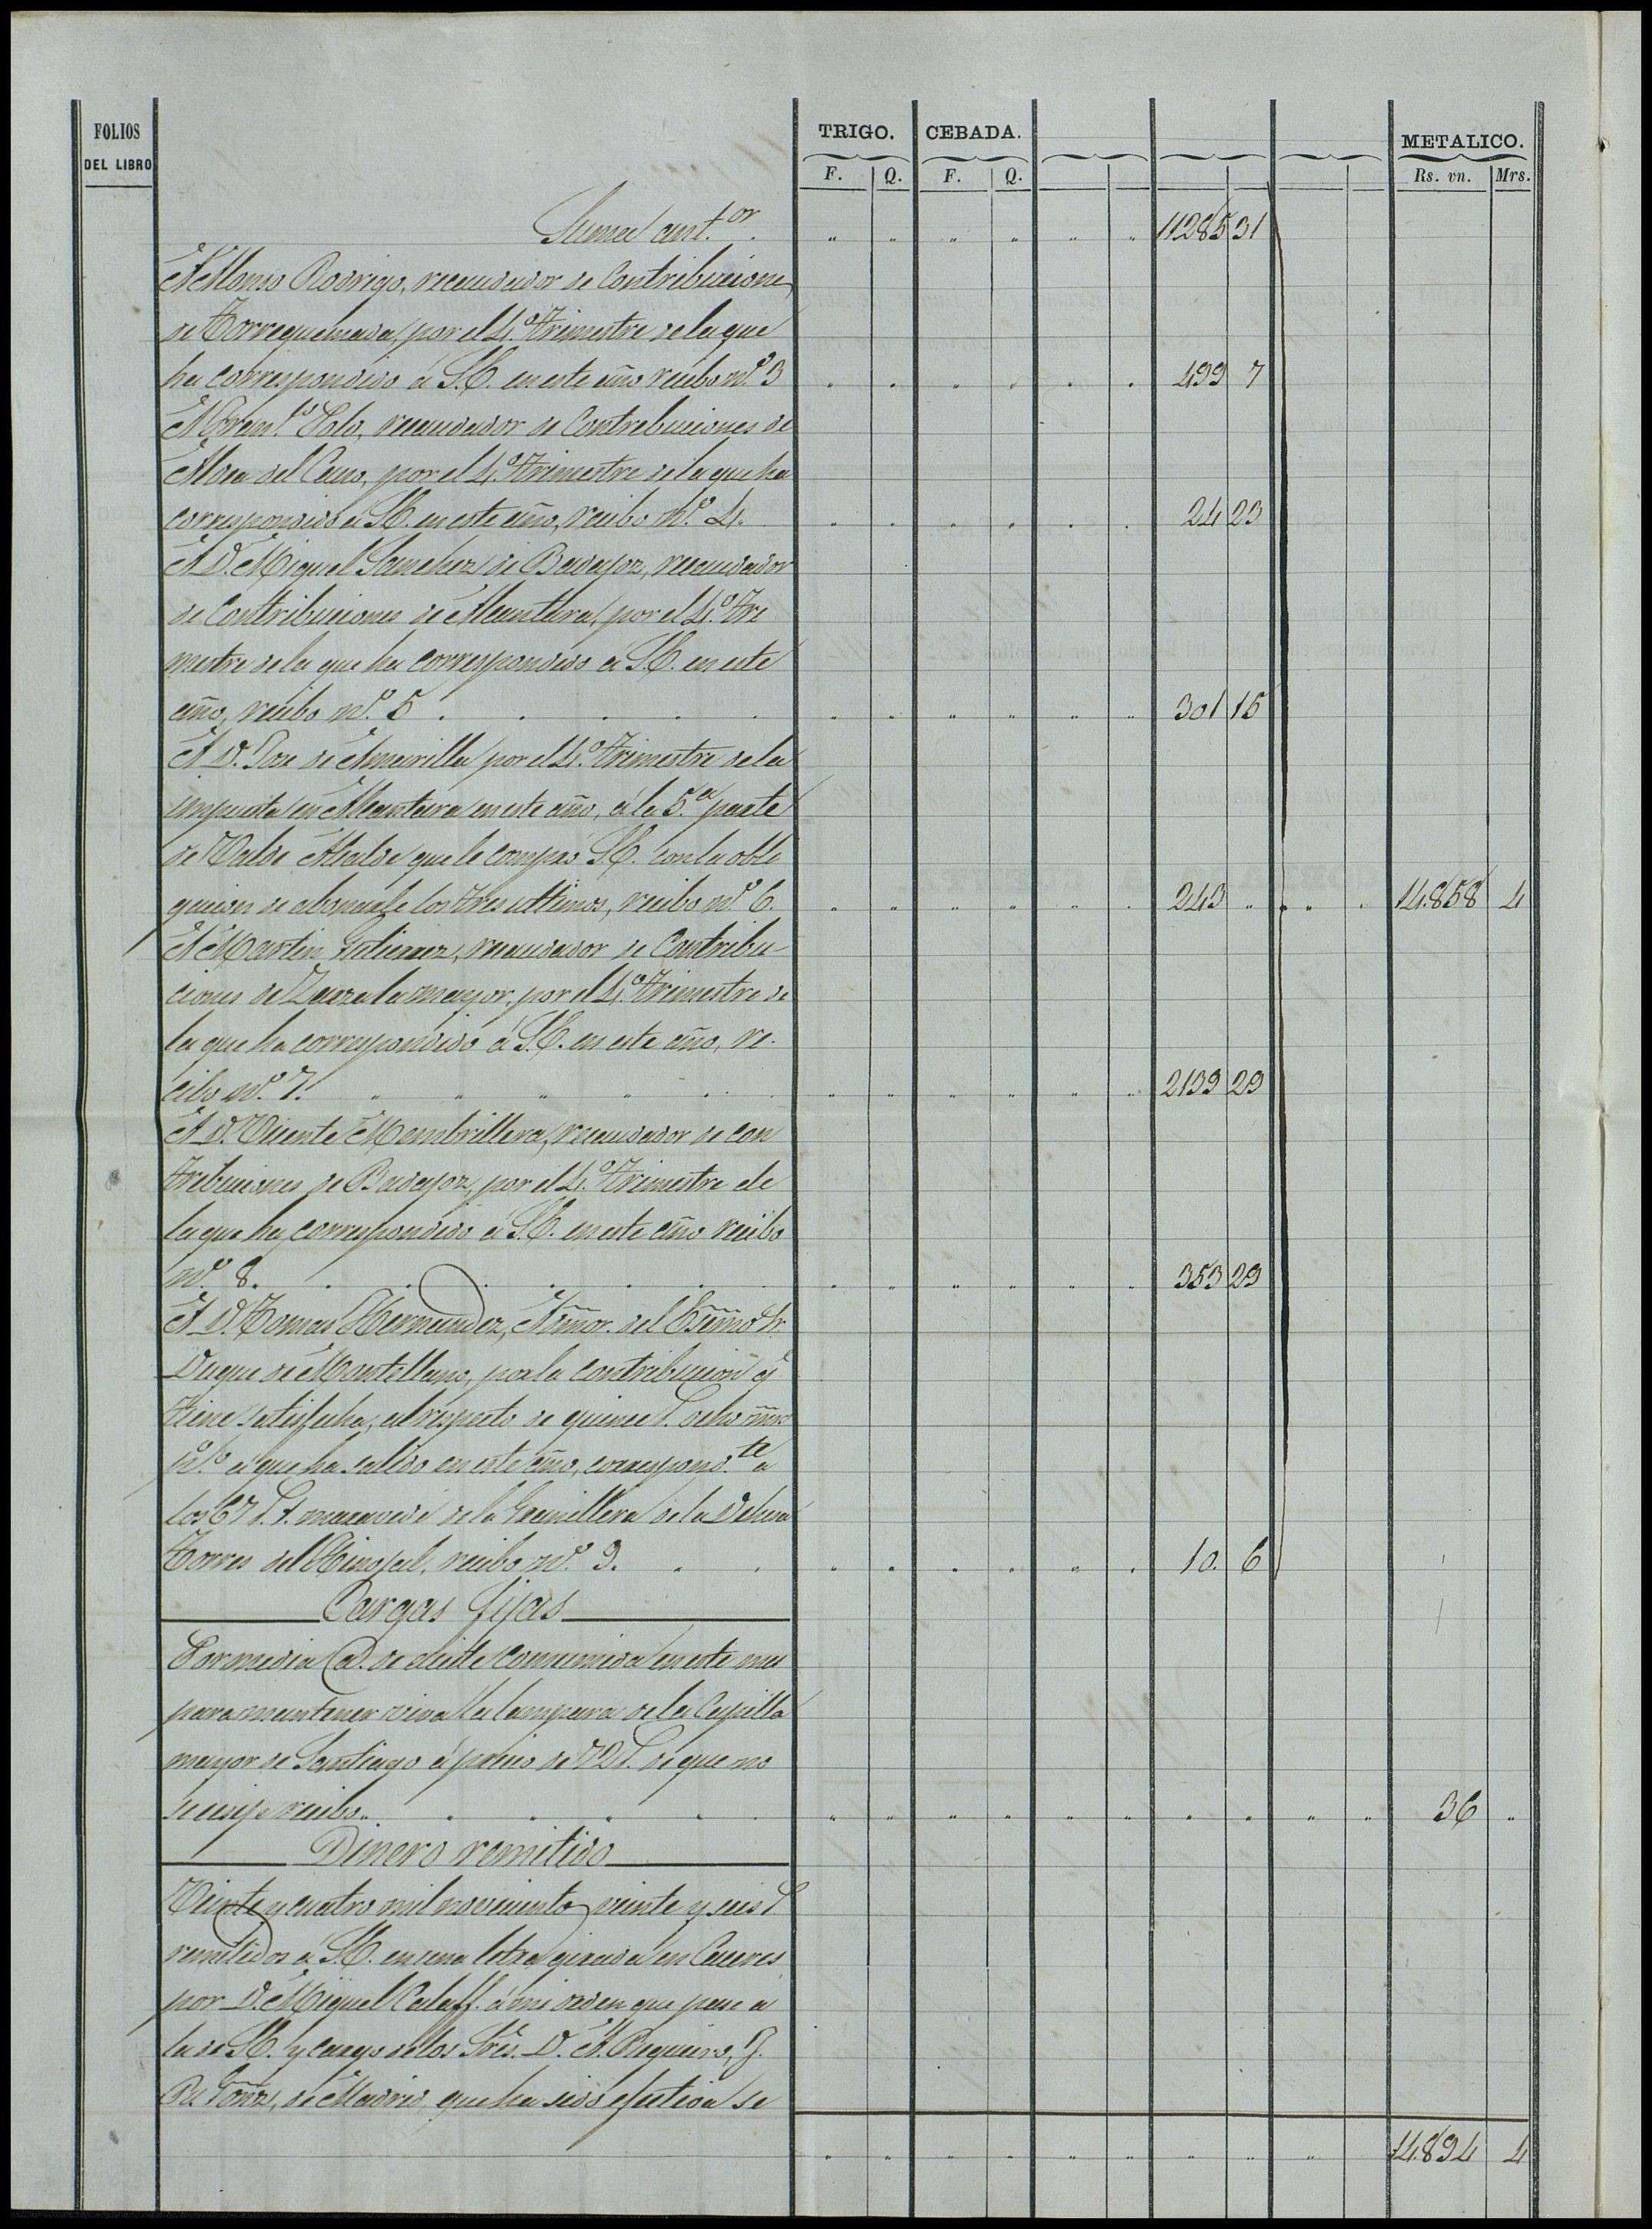 FOLIOS
DEL LIBRO
TRIGO. CEBADA. METALICO.
F. Q. F. Q. Rs. vn. Mrs.
Suma ant.or 11285 31
A Alonso Rodrigo, recaudador de Contribuciones
de Torrequemada, por el 4.º trimestre de la que
ha correspondido á S.E. en este año recibo n.º 3 499 7
A Fran.co Polo, recaudador de Contribuciones de
Aldea del Cano, por el 4.º trimestre de la que ha
correspondido á S.E. en este año, recibo n.º 4. 24 23
A D. Miguel Sanchez de Badajoz, recaudador
de Contribuciones de Alcantara, por el 4.º tri
mestre de la que ha correspondido á S.E. en este
año, recibo n.º 5 301 15
A D. Jose de Amarilla por el 4.º trimestre de la
impuesta en Alcantara en este año, á la 5.a parte
de Valde Alcalde que le compró S.E. con la obli
gacion de abonarle los tres ultimos, recibo n.º 6. 243 " 14.858 4
A Martin Gutierrez, recaudador de Contribu
ciones de Zarza la mayor, por el 4.º trimestre de
la que ha correspondido á S.E. en este año, re-
cibo n.º 7. 2139 29
A D. Vicente Membrillera, recaudador de con
tribuciones de Badajoz, por el 4.º trimestre de
la que ha correspondido á S.E. en este año recibo
n.º 8. 353 29
A D. Tomas Hernandez, Admor. del Esemo Sr.
Duque de Montellano, por la contribucion q.
tiene satisfecha, al respecto de quince r. ocho mrs
p.º a que ha salido en este año, correspond.te a
los 67 r. 1. maravedi de la Granillera de la Dehesa
Torres del Hinojal, recibo n.º 9. 10. 6
Cargas fijas
Por media @. de aceite consumida en este mes
para mantener viva la lampara de la Capilla
mayor de Santiago á precio de 72 r. de que no
se exije recibo 36 "
Dinero remitido
Veinte y cuatro mil novecientos veinte y seis r.
remitidos á S.E. en una letra girada en Caceres
por D. Miguel Calaff. á mi orden que pase a
la de S.E. y cargo de los Sres. D. A. Reguero, J.
de Madrid, que ha sido efectiva se
14.894 4